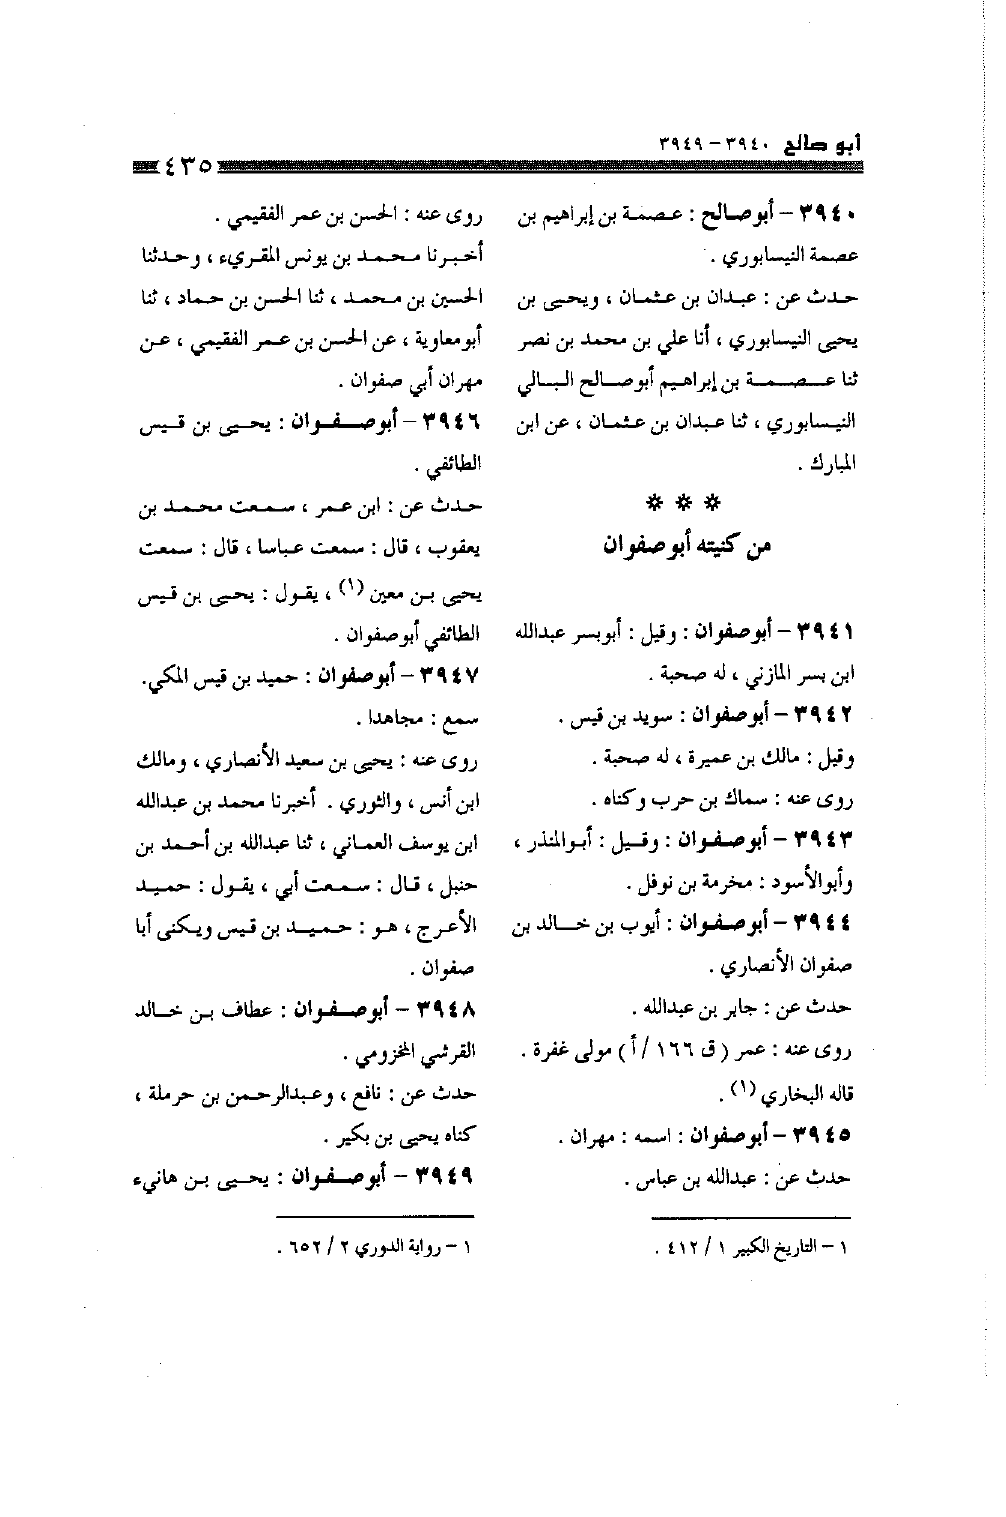 أبو صالح ٣٩٤٠ - ٣٩٤٩
٤٣٥
٣٩٤٠ - أبوصالح : عصمة بن إبراهيم بن
عصمة النيسابوري .
حدث عن : عبدان بن عثمان ، ويحيى بن
يحيى النيسابوري ، أنا علي بن محمد بن نصر
ثنا عصمة بن إبراهيم أبوصالح البالي
النيسابوري ، ثنا عبدان بن عثمان ، عن ابن
المبارك .
* * *
من كنيته أبو صفوان
٣٩٤١ - أبوصفوان : وقيل : أبوبسر عبدالله
ابن بسر المازني ، له صحبة .
٣٩٤٢ - أبوصفوان : سويد بن قيس .
وقيل : مالك بن عميرة ، له صحبة .
روى عنه : سماك بن حرب وكناه .
٣٩٤٣ - أبوصفوان : وقيل : أبوالمنذر ،
وأبوالأسود : مخرمة بن نوفل .
٣٩٤٤ - أبوصفوان : أيوب بن خالد بن
صفوان الأنصاري .
حدث عن : جابر بن عبدالله .
روى عنه : عمر ( ق ١٦٦ / أ ) مولى غفرة .
قاله البخاري (١) .
٣٩٤٥ - أبوصفوان : اسمه : مهران .
حدث عن : عبدالله بن عباس .
١ - التاريخ الكبير ١ / ٤١٢ .
روى عنه : الحسن بن عمر الفقيمي .
أخبرنا محمد بن يونس المقريء ، وحدثنا
الحسين بن محمد ، ثنا الحسن بن حماد ، ثنا
أبومعاوية ، عن الحسن بن عمر الفقيمي ، عن
مهران أبي صفوان .
٣٩٤٦ - أبوصفوان : يحيى بن قيس
الطائفي .
حدث عن : ابن عمر ، سمعت محمد بن
يعقوب ، قال : سمعت عباسا ، قال : سمعت
يحيى بن معين (١) ، يقول : يحيى بن قيس
الطائفي أبوصفوان .
٣٩٤٧ - أبوصفوان : حميد بن قيس المكي.
سمع : مجاهدا .
روى عنه : يحيى بن سعيد الأنصاري ، ومالك
ابن أنس ، والثوري . أخبرنا محمد بن عبدالله
ابن يوسف العماني ، ثنا عبدالله بن أحمد بن
حنبل ، قال : سمعت أبي ، يقول : حميد
الأعرج ، هو : حميد بن قيس ويكنى أبا
صفوان .
٣٩٤٨ - أبوصفوان : عطاف بن خالد
القرشي المخزومي .
حدث عن : نافع ، وعبدالرحمن بن حرملة ،
كناه يحيى بن بكير .
٣٩٤٩ - أبوصفوان : يحيى بن هانيء
١ - رواية الدوري ٢ / ٦٥٢ .